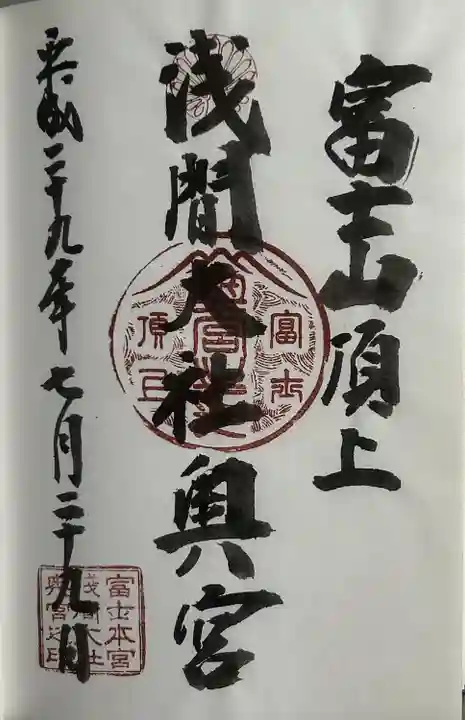 富士山頂上
浅間大社奥宮
平成二十九年七月二十九日
富士
頂上
富士本宮
浅間大社
奥宮之印